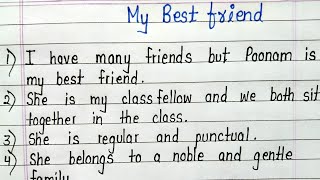 My Best friend
1) I have many friends but Poonam is
my best friend.
2) She is my class fellow and we both sit
together in the class.
3) She is regular and punctual.
4) She belongs to a noble and gentle
family